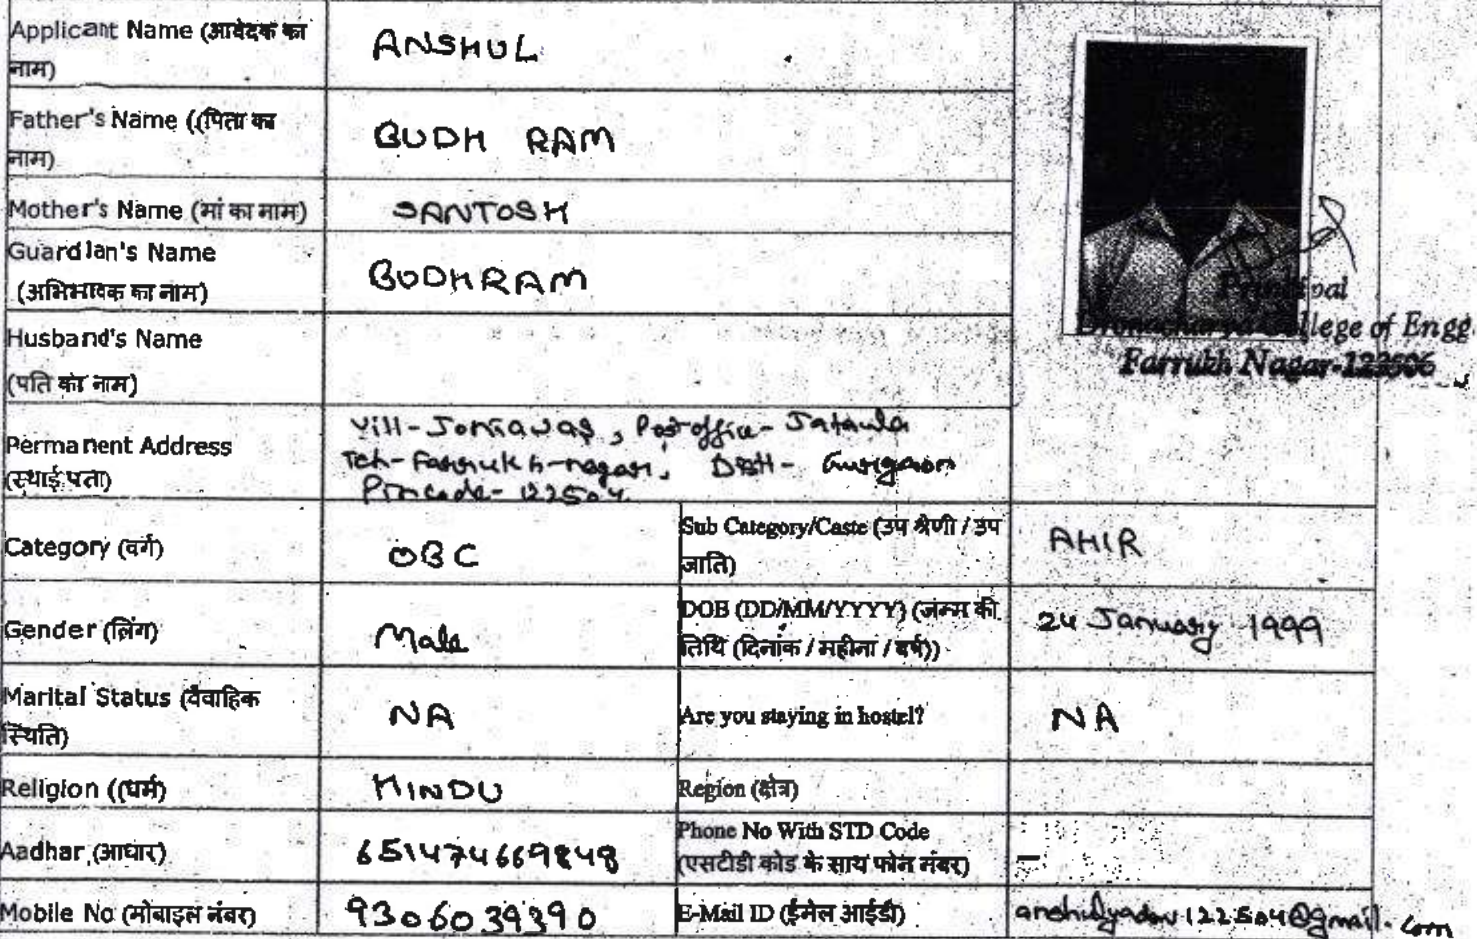 Applicant Name (आवेदक का ANSHUL
नाम)
Father's Name ((पिता का BUDH RAM
नाम)
Mother's Name (मां का नाम) SANTOSH
Guardian's Name BUDHRAM
(अभिभावक का नाम)
Principal
College of Engg.
Farrukh Nagar-122506
Husband's Name
(पति का नाम)
Permanent Address
(स्थाई पता)
Vill-Joniawas, Postoffice-Jataula
Teh-Farrukh-nagar, Distt- Gurgaon
Pincode-122504
Category (वर्ग) OBC Sub Category/Caste (उप श्रेणी / उप AHIR
जाति)
Gender (लिंग) Male DOB (DD/MM/YYYY) (जन्म की 24 January 1999
तिथि (दिनांक / महीना / वर्ष))
Marital Status (वैवाहिक NA Are you staying in hostel? NA
स्थिति)
Religion ((धर्म) HINDU Region (क्षेत्र)
Aadhar (आधार) 651474669848 Phone No With STD Code
(एसटीडी कोड के साथ फोन नंबर)
Mobile No (मोबाइल नंबर) 9306039390 E-Mail ID (ईमेल आईडी) anshulyadav122504@gmail.com